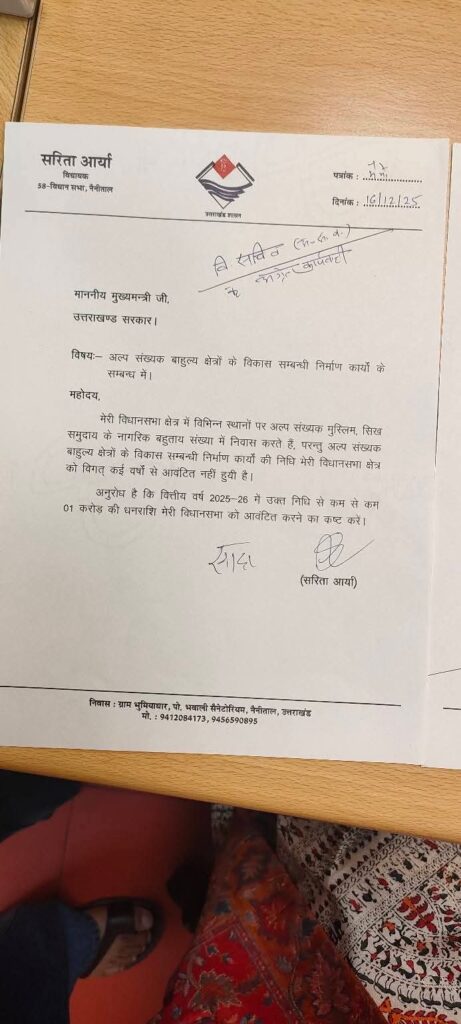 सरिता आर्या
विधायक
58-विधान सभा, नैनीताल
उत्तराखण्ड शासन
पत्रांक :
दिनांक : 16/12/25
वि. सचिव
माननीय मुख्यमन्त्री जी,
उत्तराखण्ड सरकार।
विषयः– अल्प संख्यक बाहुल्य क्षेत्रों के विकास सम्बन्धी निर्माण कार्यो के
सम्बन्ध में।
महोदय,
मेरी विधानसभा क्षेत्र में विभिन्न स्थानों पर अल्प संख्यक मुस्लिम, सिख
समुदाय के नागरिक बहुताय संख्या में निवास करते हैं, परन्तु अल्प संख्यक
बाहुल्य क्षेत्रों के विकास सम्बन्धी निर्माण कार्यो की निधि मेरी विधानसभा क्षेत्र
को विगत् कई वर्षो से आवंटित नहीं हुयी है।
अनुरोध है कि वित्तीय वर्ष 2025-26 में उक्त निधि से कम से कम
01 करोड़ की धनराशि मेरी विधानसभा को आवंटित करने का कष्ट करें।
सादर
(सरिता आर्या)
निवास : ग्राम भूमियाधार, पो. भवाली सैनेटोरियम, नैनीताल, उत्तराखंड
मो. : 9412084173, 9456590895